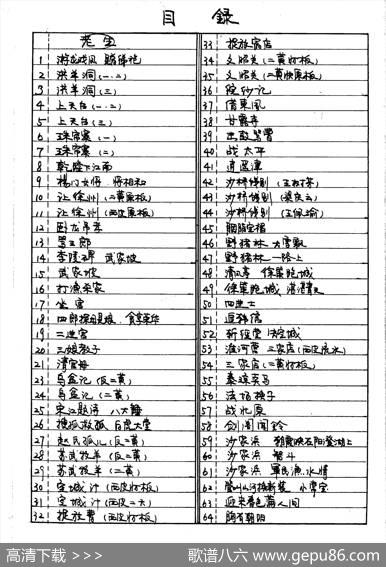 目 録
老生
1 游龙戏凤
2 洪羊洞(一.二)
3 洪羊洞(三)
4 上天台(一.二)
5 上天台(三)
6 珠帘寨(一)
7 珠帘寨(二)
8 乾隆下江南
9 杨门女将 将相和
10 让徐州(二黄原板)
11 让徐州(西皮原板)
12 卧龙吊孝
13 骂王郎
14 李陵碑 武家坡
15 武家坡
16 打渔杀家
17 坐宫
18 四郎探母见娘 食享荣华
19 二进宫
20 三娘教子
21 清官册
22 乌盆记(反二黄)
24 乌盆记(二黄)
25 宋江题诗 八大锤
26 搜孤救孤 白虎大堂
27 赵氏孤儿(反二黄)
28 苏武牧羊(反二黄)
29 苏武牧羊(二黄)
30 空城计(西皮原板)
31 空城计(西皮二六)
32 捉放曹(西皮原板)
33 捉放宿店
34 文昭关(二黄原板)
35 文昭关(二黄快原板)
36 浣纱记
37 借東風
38 甘露寺
39 击鼓骂曹
40 战太平
41 逍遥津
42 沙桥饯别
43 沙桥饯别
44 沙桥饯别
45 胭脂宝褶
46 野猪林 大雪飘
47 野猪林 一路上
48 清风亭 徐策跑城
49 徐策跑城
50 四进士
51 追韩信
52 斩经堂
53 淮河营 三家店(西皮流水)
54 三家店(二黄原板)
55 秦琼卖马
56 法场换子
57 战北原
58 剑阁闻铃
59 沙家浜 朝霞映在阳澄湖上
60 沙家浜 智斗
61 沙家浜 軍民鱼水情
62 管山山河换新装
63 迎来春色满人间
64 胸有朝阳
高清下载 >>>
歌谱八六 www.gepu86.com